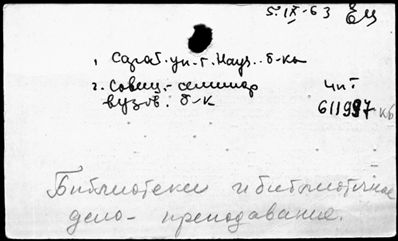 5.IX-63 ЕЦ
1. Сарат. ун-т. Науч. б-ка
2. Совещ.-семинар чит
вузов. б-к 611997-кб
Библиотеки и библиотечное
дело - преподавание.